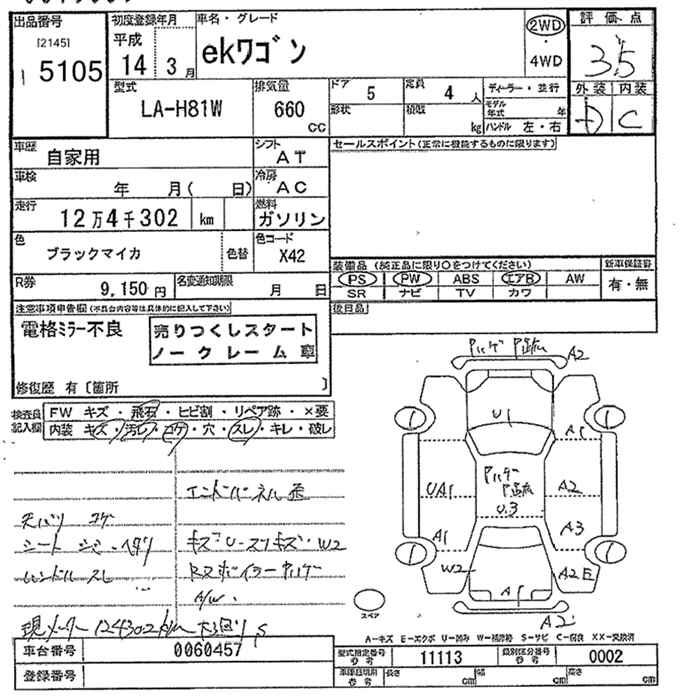 出品番号
[2145]
5105
初度登録年月
平成
14年 3月
車名・グレード
ekワゴン
2WD
・
4WD
評価点
3.5
外装 内装
D C
型式
LA-H81W
排気量
660
CC
ドア 5
定員 4 人
形状
積載 kg
ディーラー・並行
モデル年式 年
ハンドル 左・右
車歴
自家用
シフト
AT
セールスポイント(正常に機能するものに限ります)
車検
年 月( 日)
冷房
AC
走行
12万4千302 km
燃料
ガソリン
色
ブラックマイカ
色替
色コード
X42
装備品 (純正品に限り○をつけてください)
新車保証書
PS PW ABS エアB AW
有・無
SR ナビ TV カワ
R券
9,150円
名変通知期限
月 日
後日品
注意事項申告欄
電格ミラー不良
売りつくしスタート
ノークレーム車
修復歴 有〔箇所 〕
検査員記入欄
FW キズ・飛石・ヒビ割・リペア跡・×要
内装 キズ・汚レ・コゲ・穴・スレ・キレ・破レ
天バリ コゲ
シート ヘタリ
ハンドル スレ
A/W
現メーター 124302km
A2
U1
A1
UA1
U3
A2
A1
A3
W2
A1
A2
スペア
A-キズ E-エクボ U-凹み W-補修跡 S-サビ C-腐食 XX-交換済
車台番号
0060457
型式指定番号
参考
11113
類別区分番号
参考
0002
登録番号
参考
長さ cm
幅 cm
高さ cm